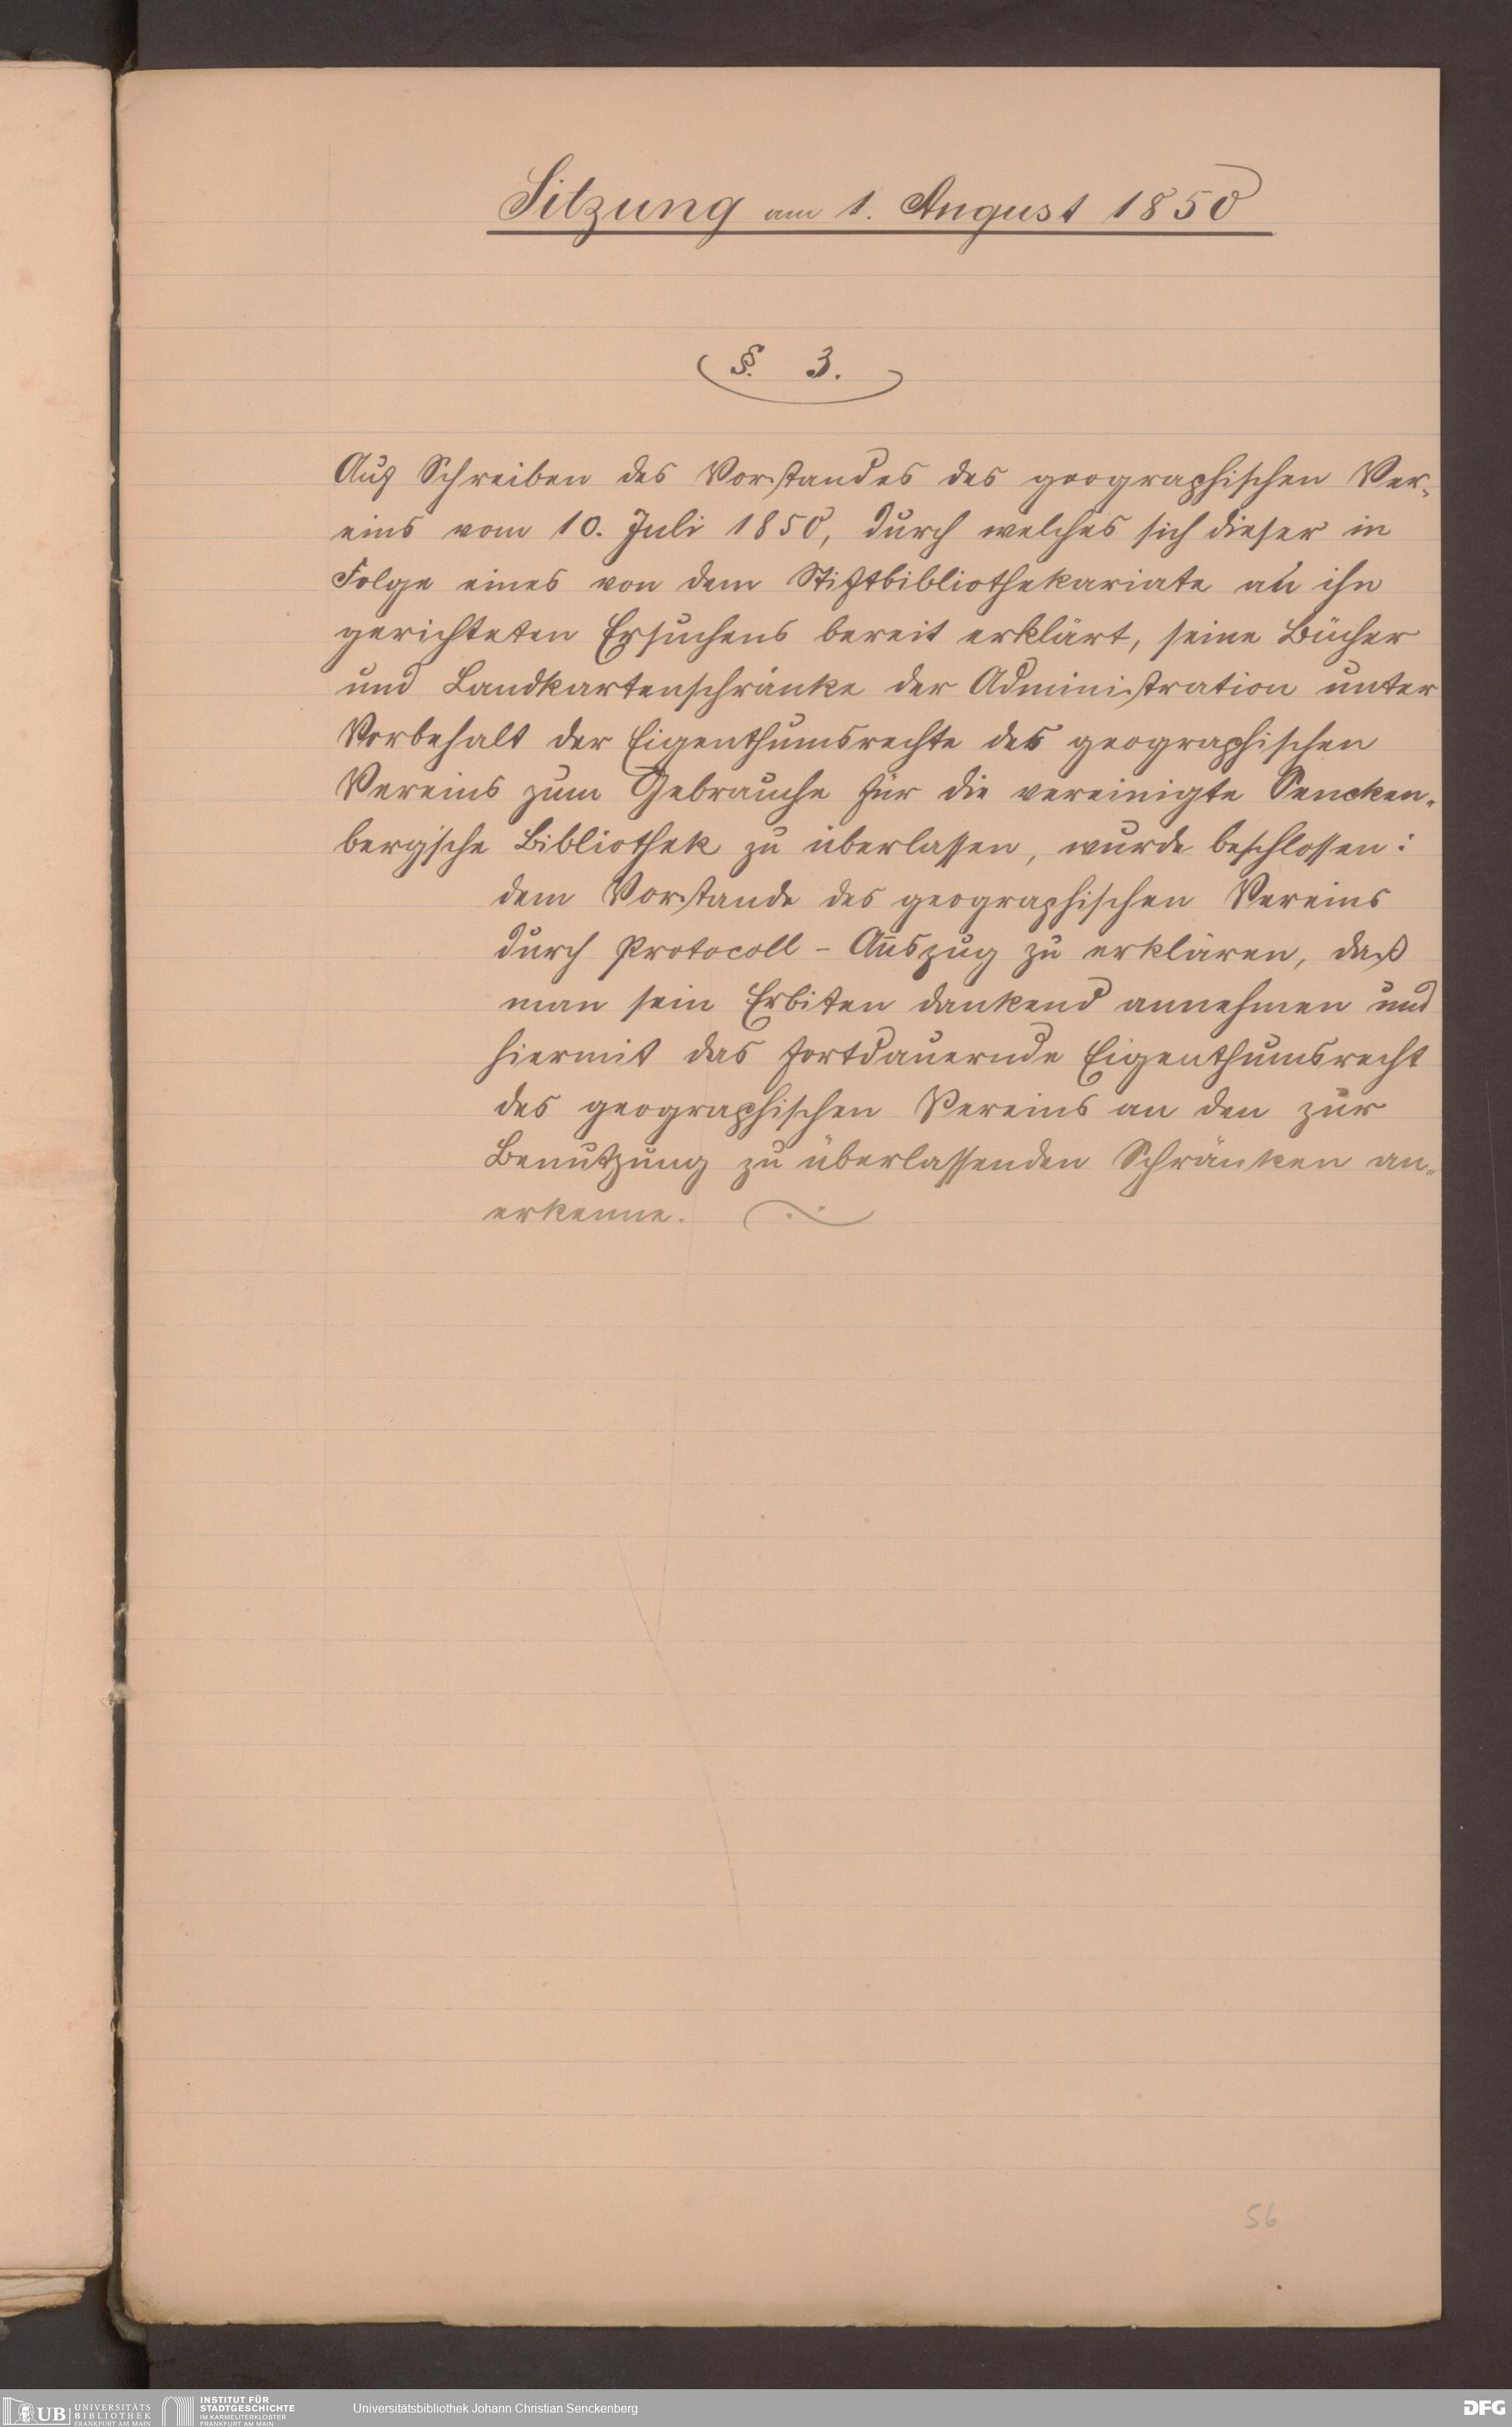 Sitzung am 1. August 1850
§. 3.
Auf Schreiben des Vorstandes des geographischen Ver-
eins vom 10. Juli 1850, durch welches sich dieser in
Folge eines von dem Stiftbibliothekariate an ihn
gerichteten Ersuchens bereit erklärt, seine Bücher
und Landkartenschränke der Administration unter
Vorbehalt der Eigenthumsrechte des geographischen
Vereins zum Gebrauche für die vereinigte Sencken-
berg'sche Bibliothek zu überlassen, wurde beschlossen:
dem Vorstande des geographischen Vereins
durch Protocoll - Auszug zu erklären, daß
man sein Erbiten dankend annehmen und
hiermit das fortdauernde Eigenthumsrecht
des geographischen Vereins an den zur
Benutzung zu überlassenden Schränken an-
erkenne.
56
UB UNIVERSITÄTS BIBLIOTHEK FRANKFURT AM MAIN
INSTITUT FÜR STADTGESCHICHTE IM KARMELITERKLOSTER FRANKFURT AM MAIN
Universitätsbibliothek Johann Christian Senckenberg
DFG